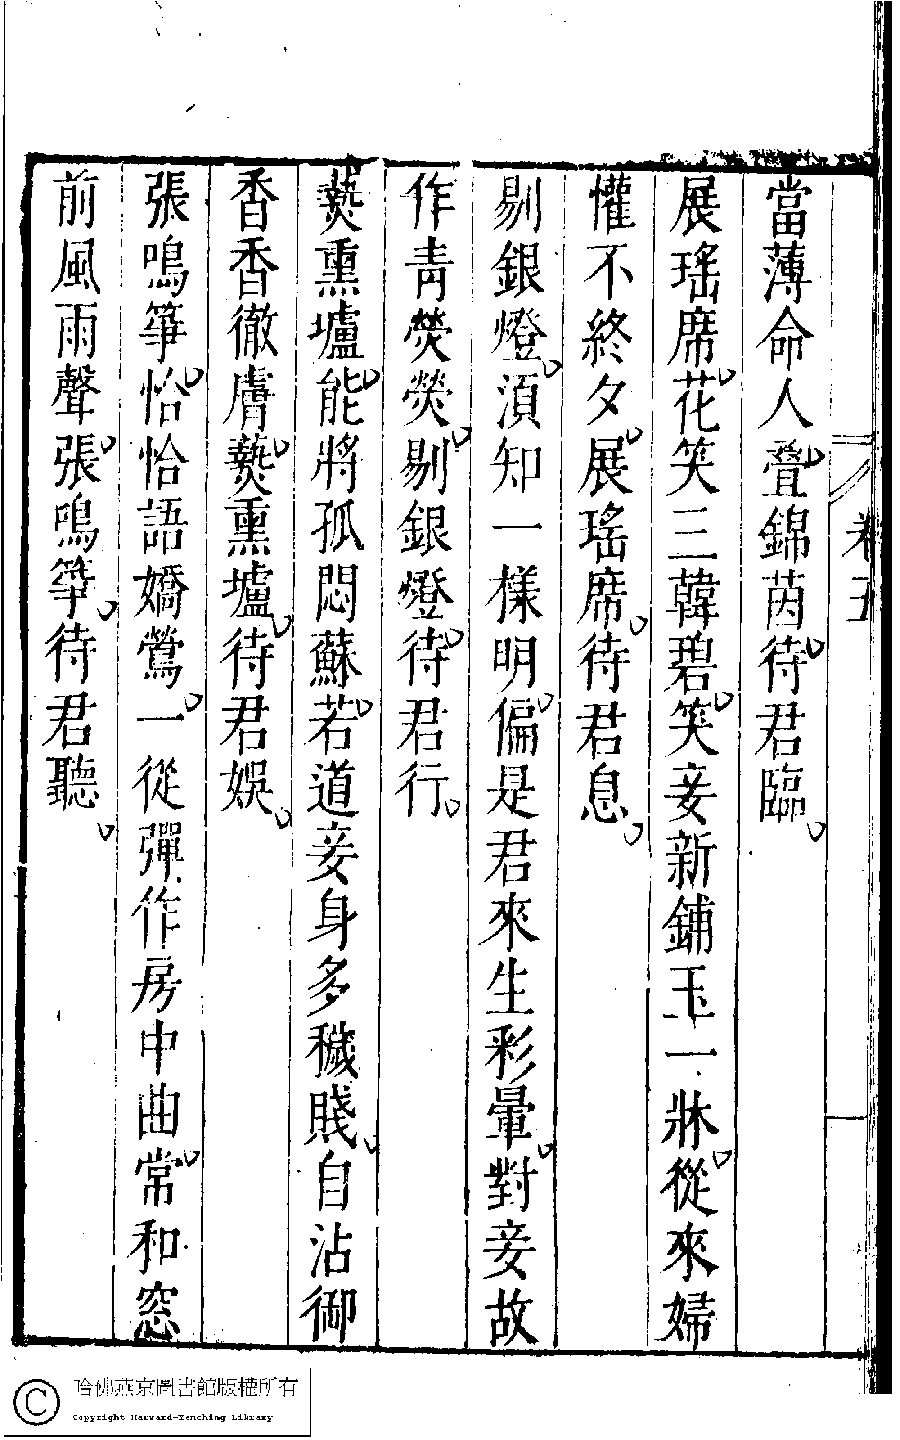 卷五
當薄命人疊錦茵待君臨
展瑤席花笑三韓碧笑妾新鋪玉一牀從來婦
懽不終夕展瑤席待君息
剔銀燈須知一樣明偏是君來生彩暈對妾故
作青熒熒剔銀燈待君行
爇熏壚能將孤悶蘇若道妾身多穢賤自沾御
香香徹膚爇熏壚待君娛
張鳴箏恰恰語嬌鶯一從彈作房中曲常和窓
前風雨聲張鳴箏待君聽
哈佛燕京圖書館版權所有
Copyright Harvard-Yenching Library